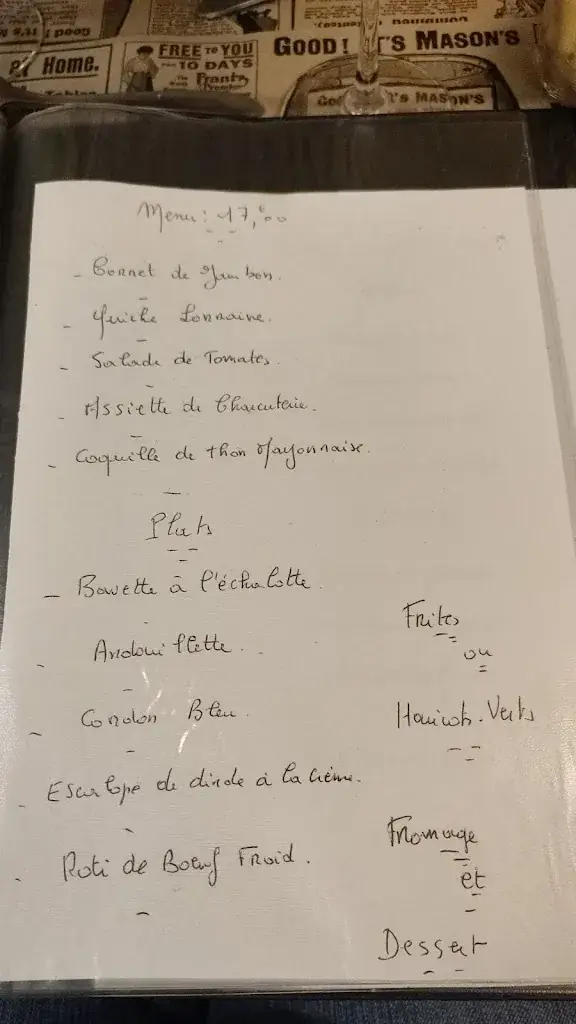 Home.
FREE TO YOU
10 DAYS
Frantz
GOOD! IT'S MASON'S
Menu: 17,€00
- Cornet de Jambon.
- Quiche Lorraine.
- Salade de Tomates.
- Assiette de Charcuterie.
- Coquille de thon Mayonnaise.
Plats
- Bavette à l'échalotte.
- Andouillette..
- Cordon Bleu.
- Escalope de dinde à la crème.
- Roti de Boeuf Froid.
Frites
ou
Haricots-Verts
Fromage
et
Dessert